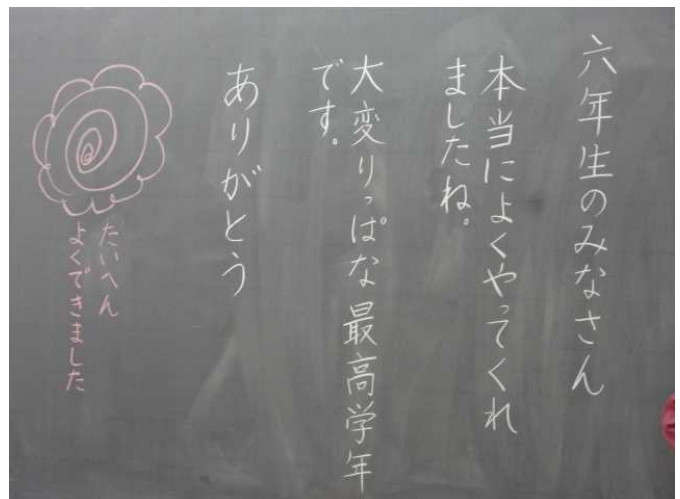 六年生のみなさん
本当によくやってくれ
ましたね。
大変りっぱな最高学年
です。
ありがとう
たいへん
よくできました